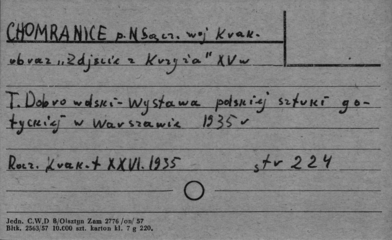 CHOMRANICE p. N Sącz. woj Krak.
obraz „Zdjęcie z Krzyża" XV w
T. Dobrowolski - Wystawa polskiej sztuki go-
tyckiej w Warszawie 1935 r
Rocz. Krak. t XXVI. 1935 str 224
Jedn. C.W.D 8/Olsztyn Zam 2776/on/57
Bltk. 2563/57 10.000 szt. karton kl. 7 g 220.